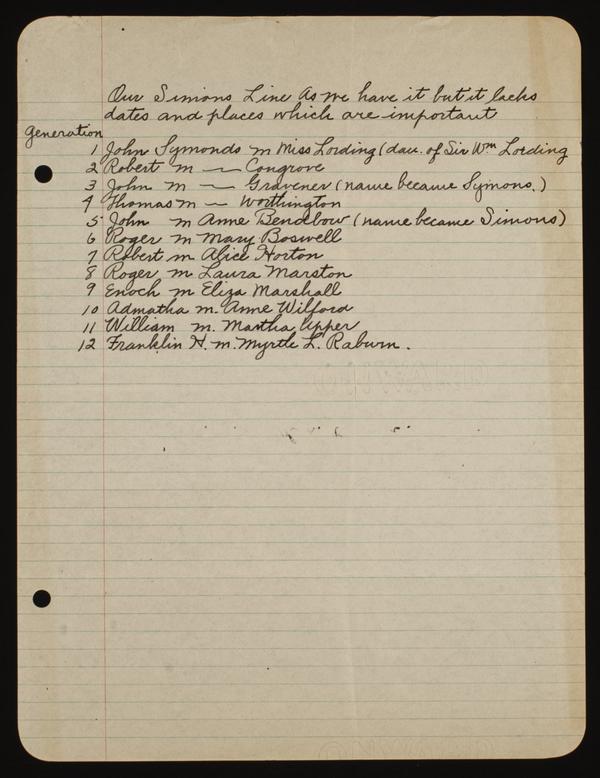 Our Simons Line As we have it but it lacks
dates and places which are important
Generation
1 John Symonds m Miss Lording (dau. of Sir Wm Lording
2 Robert m — Congrove
3 John m — Gravener (name became Symons.)
4 Thomas m — Worthington
5 John m Anne Bendbow (name became Simons)
6 Roger m Mary Boswell
7 Robert m Alice Horton
8 Roger m Laura Marston
9 Enoch m Eliza Marshall
10 Admatha m. Anne Wilford
11 William m. Martha Upper
12 Franklin H. m. Myrtle L. Raburn.